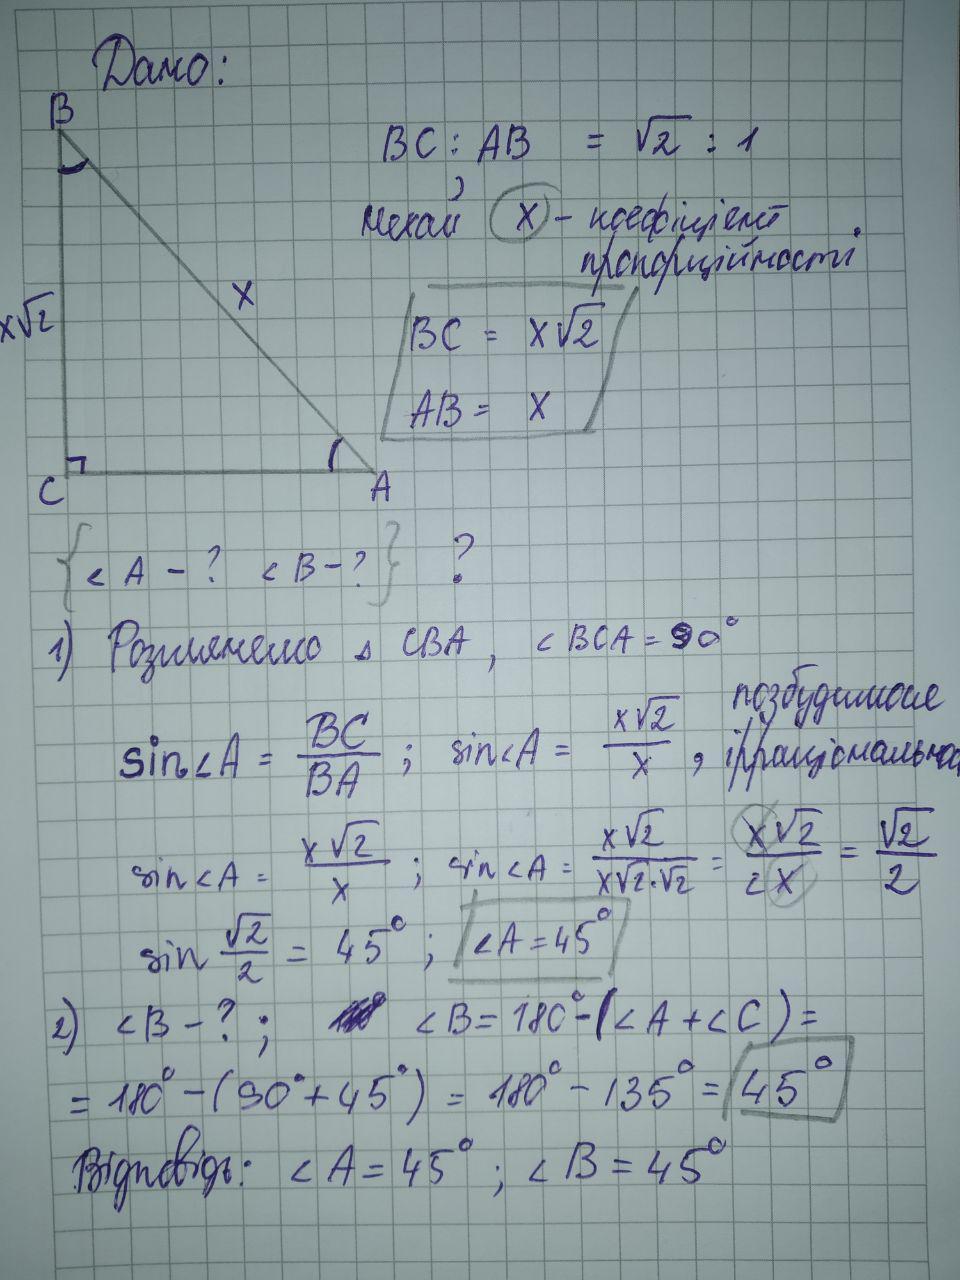 Дано:
B
BC : AB = √2 : 1
Нехай x - коефіцієнт
пропорційності
x√2
x
BC = x√2
AB = x
C
A
{∠A - ? ∠B - ?} ?
1) Розглянемо △ CBA, ∠BCA = 90°
sin∠A = BC/BA ; sin∠A = x√2/x , позбудимося
ірраціональнос
sin∠A = x√2/x ; sin∠A = x√2/x√2·√2 = x√2/2x = √2/2
sin √2/2 = 45° ; ∠A = 45°
2) ∠B - ? ; ∠B = 180° - (∠A + ∠C) =
= 180° - (90° + 45°) = 180° - 135° = 45°
Відповідь: ∠A = 45° ; ∠B = 45°